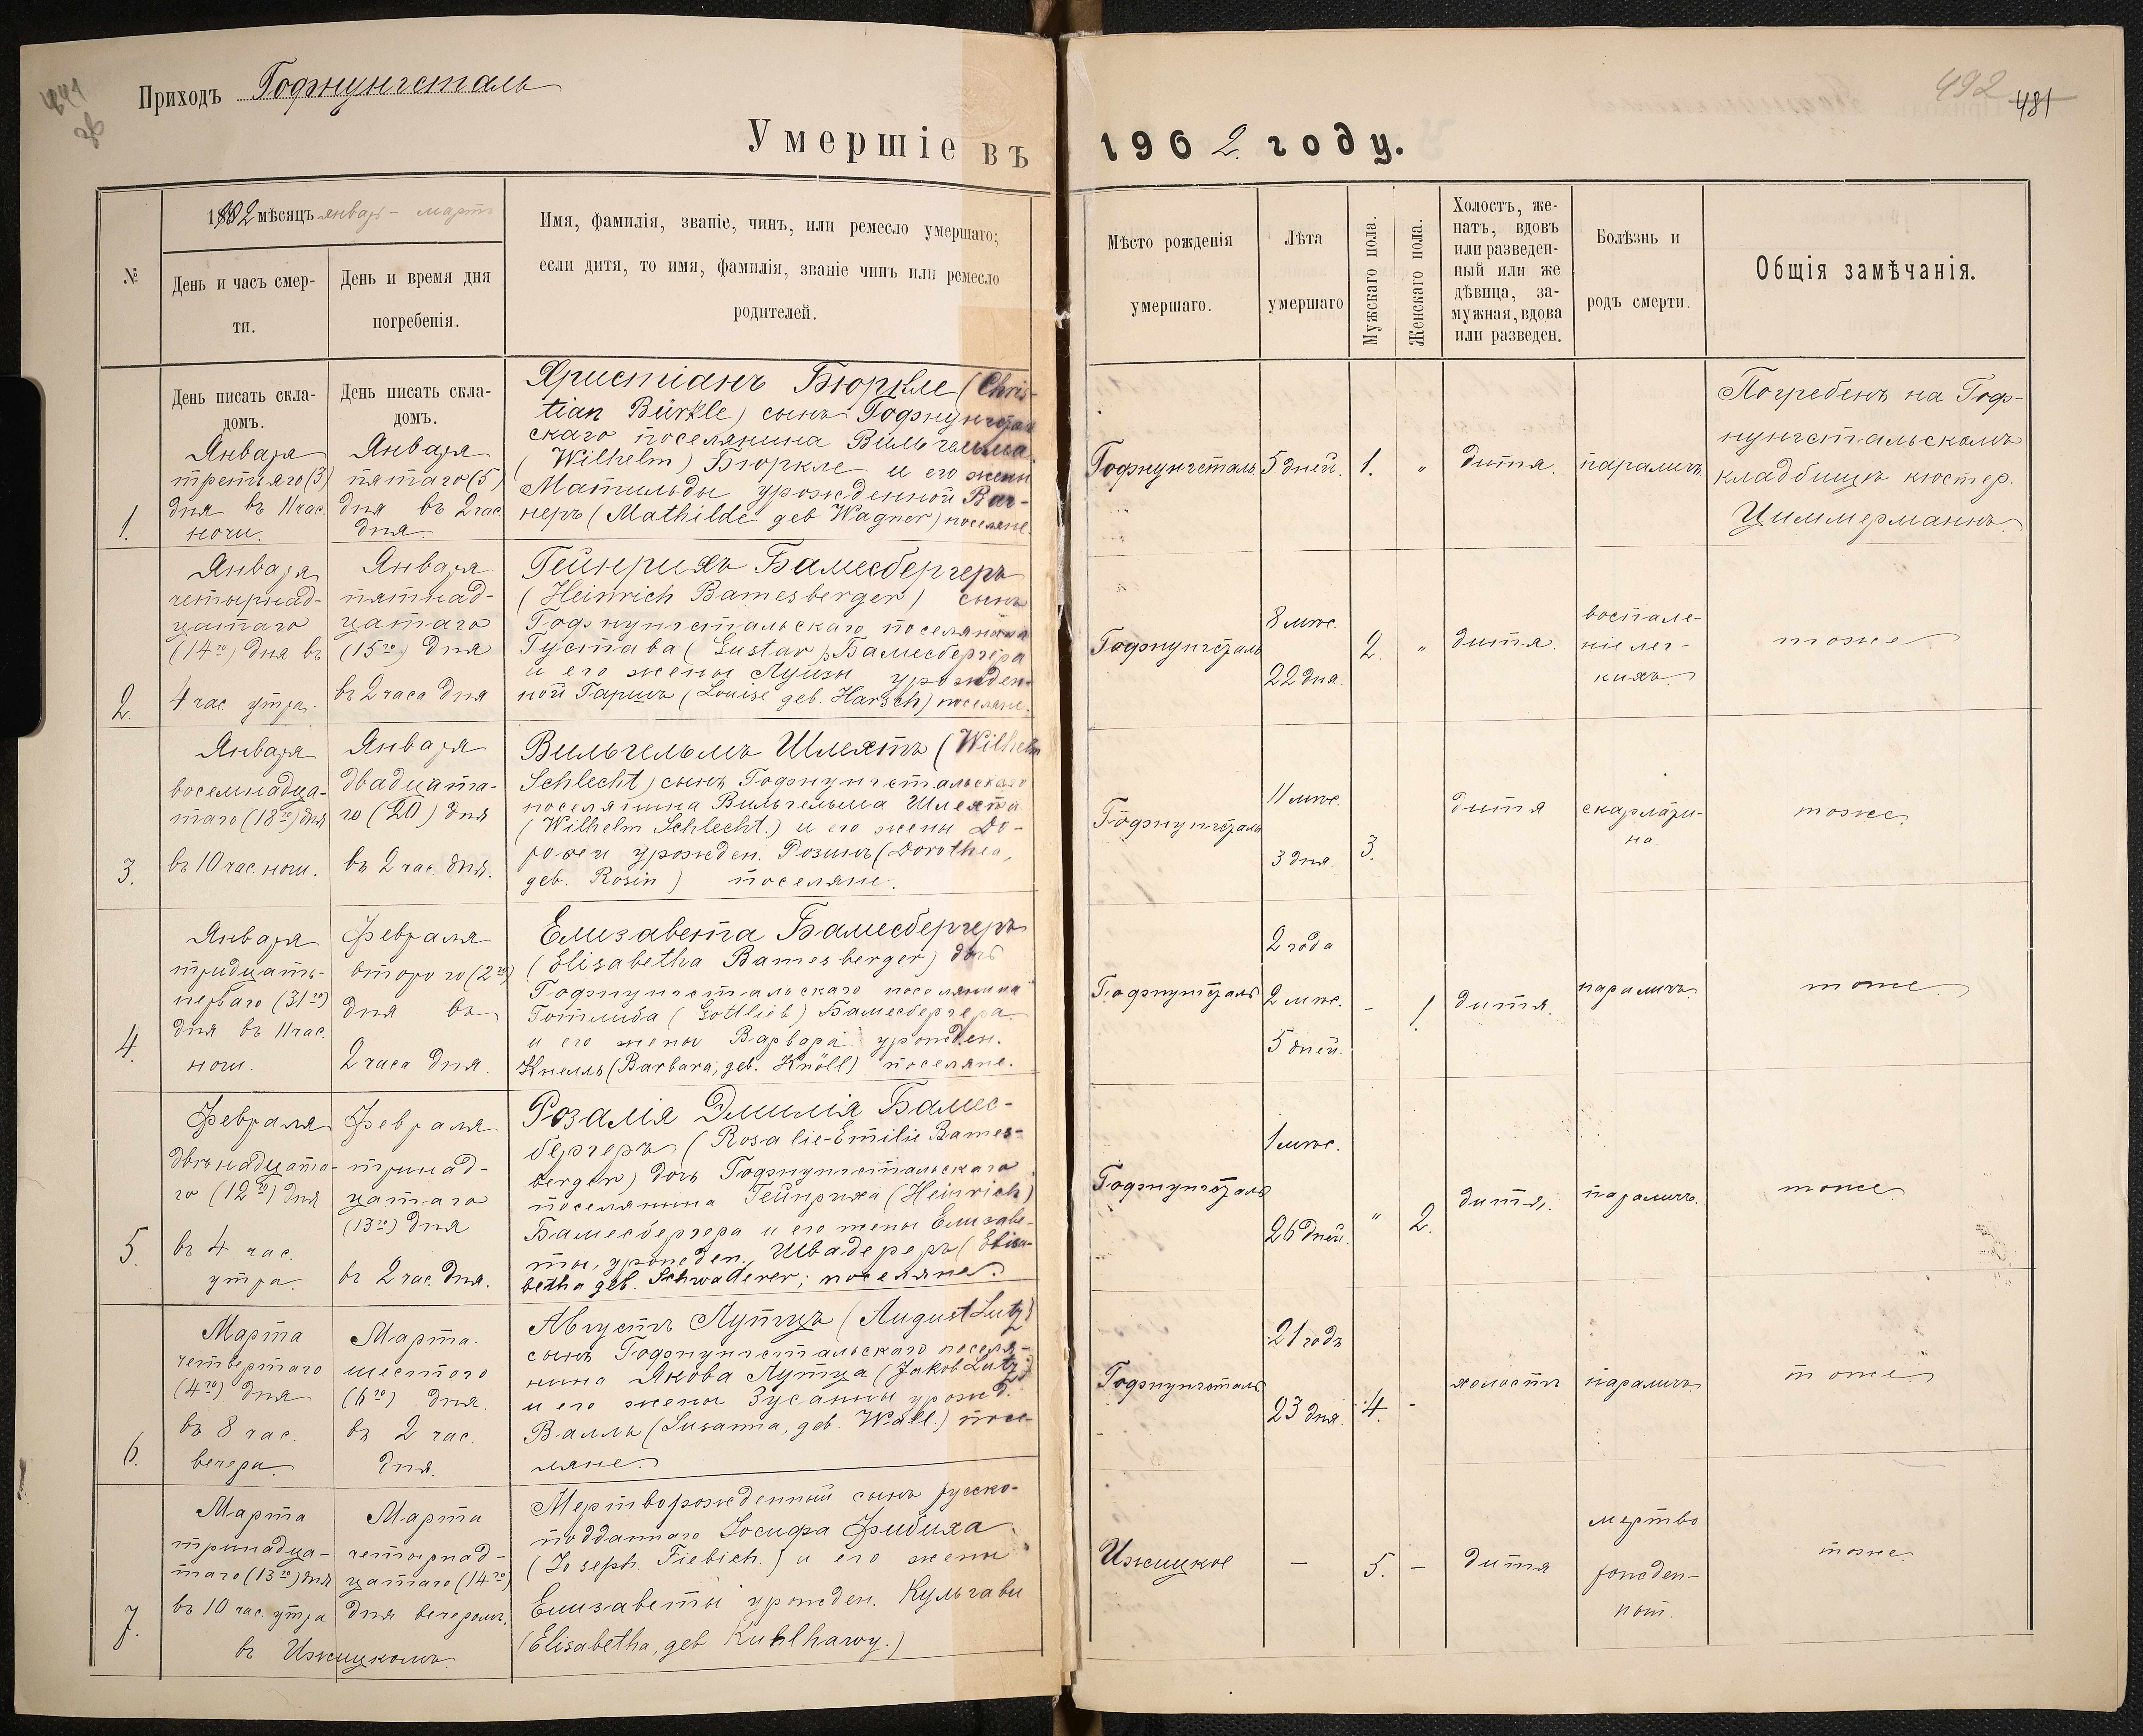 Приходъ Гофнунгсталь
492
481
Умершіе въ 1902. году.
№
1892 мѣсяцъ январь - мартъ
День и часъ смер-
ти.
День и время дня
погребенія.
Имя, фамилія, званіе, чинъ, или ремесло умершаго;
если дитя, то имя, фамилія, званіе чинъ или ремесло
родителей.
Мѣсто рожденія
умершаго.
Лѣта
умершаго
Мужскаго пола.
Женскаго пола.
Холостъ, же-
натъ, вдовъ
или разведен-
ный или же
дѣвица, за-
мужная, вдова
или разведен.
Болѣзнь и
родъ смерти.
Общія замѣчанія.
День писать скла-
домъ.
Января
третьяго (3)
дня въ 11 час.
ночи.
1.
День писать скла-
домъ.
Января
пятаго (5)
дня въ 2 час.
дня.
Христіанъ Бюркле (Chris-
tian Bürkle) сынъ Гофнунгсталь
скаго поселянина Вильгельма
(Wilhelm) Бюркле и его жены
Матильды урожденной Ваг-
неръ (Mathilde geb Wagner) поселяне.
Гофнунгсталь
5 дней.
1.
"
дитя.
параличъ
Погребенъ на Гоф-
нунгстальскомъ
кладбищѣ кюстер.
Циммерманнъ.
Января
четырнад-
цатаго
(14го) дня въ
4 час. утра.
2.
Января
пятнад-
цатаго
(15го) дня
въ 2 часа дня
Гейнрихъ Бамесбергеръ
(Heinrich Bamesberger) сынъ
Гофнунгстальскаго поселянина
Густава (Gustav) Бамесбергера
и его жены Луизы урожден-
ной Гаршъ (Louise geb. Harsch) поселяне.
Гофнунгсталь
8 мѣс.
22 дня.
2.
"
дитя.
воспале-
ніе лег-
кихъ.
тоже
Января
восемнадца-
таго (18го) дня
въ 10 час. ночи.
3.
Января
двадцата-
го (20) дня
въ 2 час. дня.
Вильгельмъ Шлехтъ (Wilhelm
Schlecht) сынъ Гофнунгстальскаго
поселянина Вильгельма Шлехта
(Wilhelm Schlecht.) и его жены До-
рофеи урожден. Розинъ (Dorothea,
geb. Rosin) поселяне.
Гофнунгсталь
11 мѣс.
3 дня.
3.
дитя
скарлати-
на.
тоже.
Января
тридцать-
перваго (31го)
дня въ 11 час.
ночи.
4.
Февраля
второго (2го)
дня въ
2 часа дня.
Елизавета Бамесбергеръ
(Elisabetha Bamesberger) дочь
Гофнунгстальскаго поселянина
Готлиба (Gottlieb) Бамесбергера
и его жены Варвара урожден.
Кнелль (Barbara, geb. Knöll) поселяне.
Гофнунгсталь
2 года
2 мѣс.
5 дней.
-
1.
дитя.
параличъ.
тоже.
Февраля
двѣнадцата-
го (12го) дня
въ 4 час.
утра.
5.
Февраля
тринад-
цатаго
(13го) дня
въ 2 час. дня.
Розалія Эмилія Бамес-
бергеръ (Rosalie-Emilie Bames-
berger) дочь Гофнунгстальскаго
поселянина Гейнриха (Heinrich)
Бамесбергера и его жены Елизаве-
ты, урожден. Швадереръ (Elisa-
betha geb. Schwaderer; поселяне.
Гофнунгсталь
1 мѣс.
26 дней.
"
2.
дитя.
параличъ.
тоже
Марта
четвертаго
(4го) дня
въ 8 час.
вечера.
6.
Марта.
шестого
(6го) дня.
въ 2 час.
дня.
Августъ Лутцъ (August Lutz)
сынъ Гофнунгстальскаго поселя-
нина Якова Лутца (Jakob Lutz)
и его жены Зусанны урожд.
Валль (Susanna, geb. Wall.) посе-
ляне.
Гофнунгсталь
21 годъ
23 дня.
4.
-
холостъ
параличъ
тоже
Марта
тринадца-
таго (13го) дня
въ 10 час. утра
въ Ижицкомъ.
7.
Марта
четырнад-
цатаго (14го)
дня вечеромъ.
Мертворожденный сынъ русско-
подданнаго Іосифа Фибиха
(Joseph. Fiebich.) и его жены
Елизаветы урожден. Кульгави
(Elisabetha, geb Kuhlhawy.)
Ижицкое
-
5.
-
дитя
мертво
рожден-
ный.
тоже.